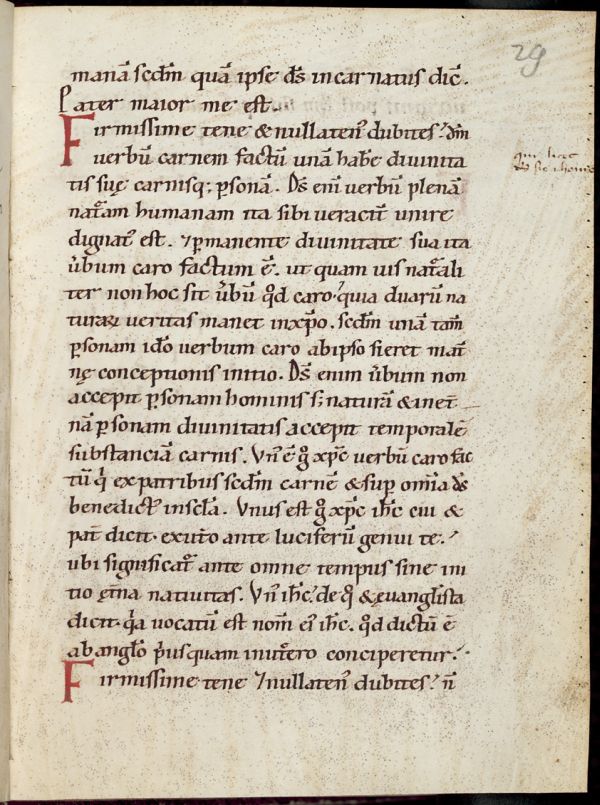 29
manā scdm̄ quā ipse ds̄ incarnatus dic̄.
Pater maior me est.
Firmissime tene & nullaten᷒ dubites. dm̄
verbū carnem factū unā habe divinita
tis suę carnisq; ꝑsonā. Ds̄ eni verbū plenā
nat᷑am humanam ita sibi veracit̄ unire
dignat᷑ est. ⁊ꝑmanente divinitate sua ita
ūbum caro factum ē. ut quam uis nat᷑ali
ter non hoc sit ūbū qd̄ caro. quia duarū na
turaꝝ veritas manet inxp̄o. scdm̄ unā tam̄
ꝑsonam idō verbum caro abipso fieret mat̄
nę conceptionis initio. Ds̄ enim ūbum non
accepit ꝑsonam hominis s; naturā & inet̄
nā ꝑsonam divinitatis accepit temporalē
substanciā carnis. Vn᷒ ē gͦ xp̄c verbū caro fac
tū qͥ expatribus scdm̄ carnē & suꝑ om̄ia ds̄
benedict᷒ insc̄la. Vnus est gͦ xp̄c ih̄c cui &
pat̄ dicit. exut̄o ante luciferū genui te.
ubi significat᷑ ante omne tempus sine ini
tio et̄na nativitas. Vn᷒ ih̄c. de qͦ & euangl̄ista
dicit. qͥa vocatū est nom̄ ei᷒ ih̄c. qd̄ dictū ē
ab anglo pͥusquam inut̄ero conciperetur.
Firmissime tene ⁊nullaten᷒ dubites. n̄